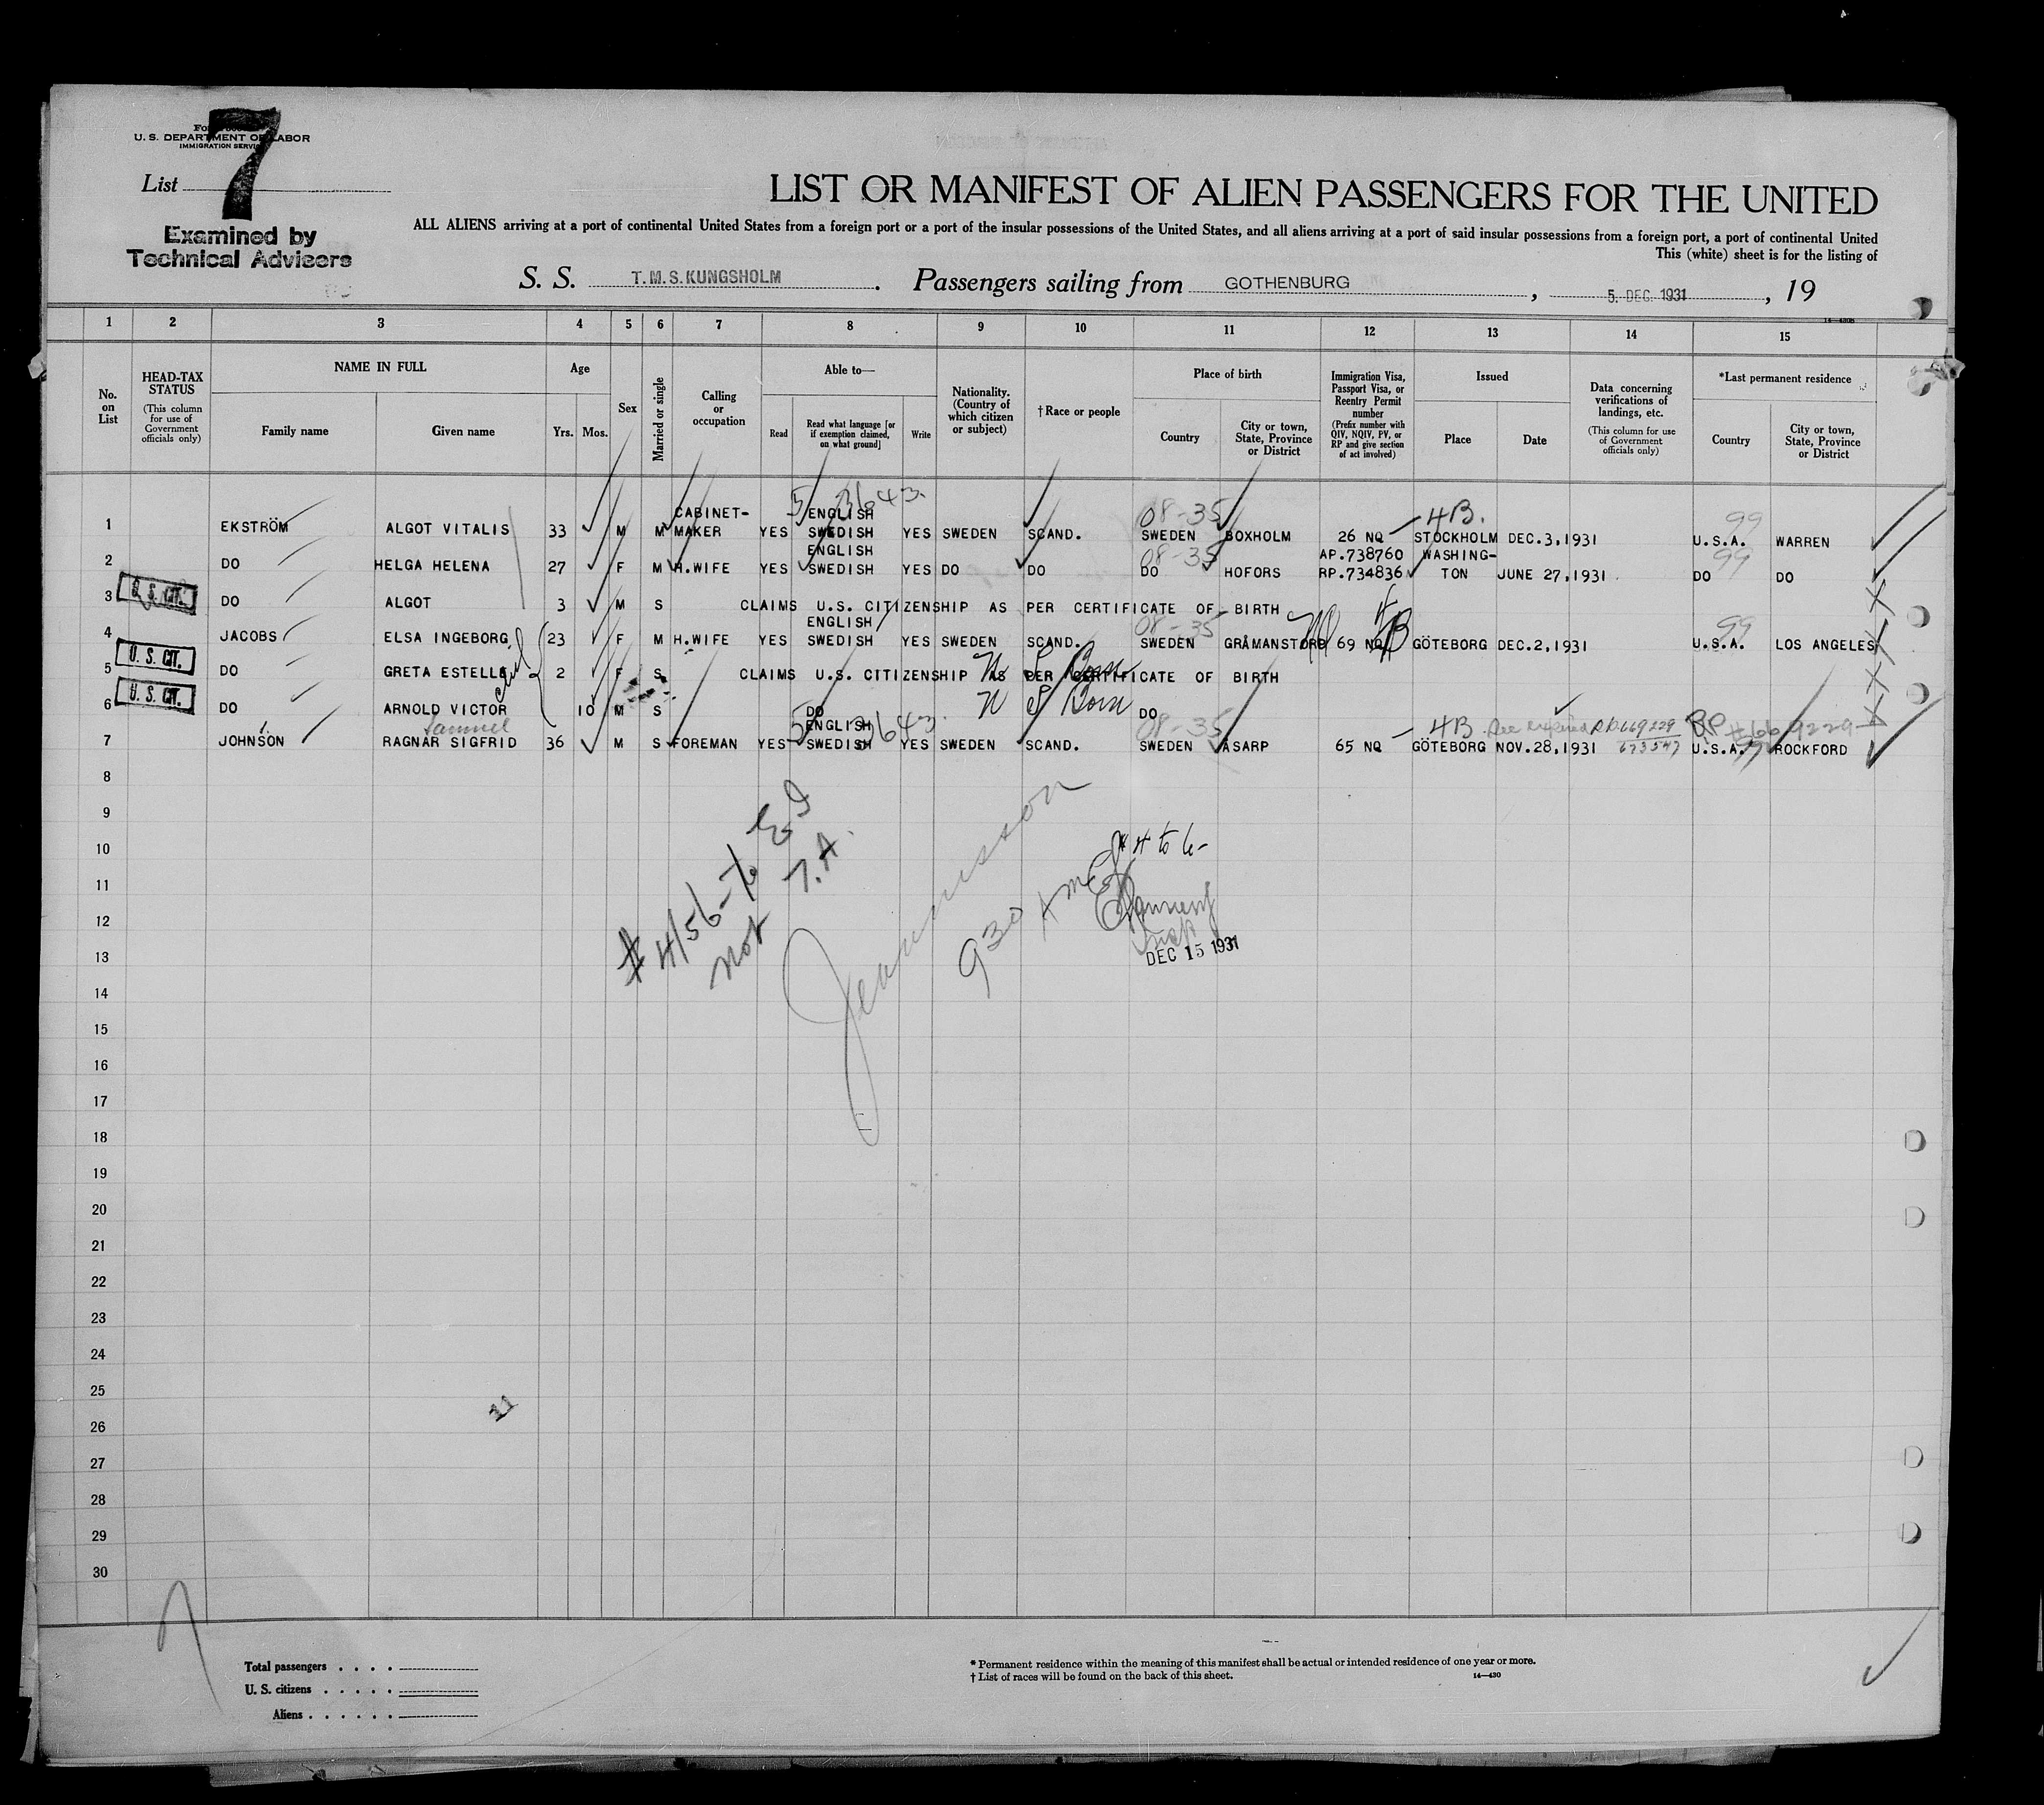 7
U. S. DEPARTMENT OF LABOR
IMMIGRATION SERVICE
List
Examined by
Technical Advisers
LIST OR MANIFEST OF ALIEN PASSENGERS FOR THE UNITED
ALL ALIENS arriving at a port of continental United States from a foreign port or a port of the insular possessions of the United States, and all aliens arriving at a port of said insular possessions from a foreign port, a port of continental United
This (white) sheet is for the listing of
S. S. T.M.S.KUNGSHOLM . Passengers sailing from GOTHENBURG , 5 DEC. 1931 , 19
1 2 3 4 5 6 7 8 9 10 11 12 13 14 15
No. on List
HEAD-TAX STATUS (This column for use of Government officials only)
NAME IN FULL
Family name Given name
Age
Yrs. Mos.
Sex
Married or single
Calling or occupation
Able to—
Read Read what language [or if exemption claimed, on what ground] Write
Nationality. (Country of which citizen or subject)
†Race or people
Place of birth
Country City or town, State, Province or District
Immigration Visa, Passport Visa, or Reentry Permit number (Prefix number with QIV, NQIV, PV, or RP and give section of act involved)
Issued
Place Date
Data concerning verifications of landings, etc. (This column for use of Government officials only)
*Last permanent residence
Country City or town, State, Province or District
5 3643
CABINET- ENGLISH 08-35 4B. 99
1 EKSTRÖM ALGOT VITALIS 33 M M MAKER YES SWEDISH YES SWEDEN SCAND. SWEDEN BOXHOLM 26 NQ STOCKHOLM DEC.3,1931 U.S.A. WARREN
ENGLISH 08-35 AP.738760 WASHING- 99
2 DO HELGA HELENA 27 F M H.WIFE YES SWEDISH YES DO DO DO HOFORS RP.734836 TON JUNE 27,1931 DO DO
3 U.S. CIT. DO ALGOT 3 M S CLAIMS U.S. CITIZENSHIP AS PER CERTIFICATE OF BIRTH
ENGLISH 08-35 4B 99
4 JACOBS ELSA INGEBORG 23 F M H.WIFE YES SWEDISH YES SWEDEN SCAND. SWEDEN GRÅMANSTORP 69 NQ GÖTEBORG DEC.2,1931 U.S.A. LOS ANGELES
U. S. CIT. U S Born
5 DO GRETA ESTELLE 2 F S CLAIMS U.S. CITIZENSHIP AS PER CERTIFICATE OF BIRTH
U. S. CIT. U S Born
6 DO ARNOLD VICTOR 10 M S DO DO
Samuel ENGLISH 5 3643 08-35 4B See expired RP 669229 RP #669229
7 JOHNSON RAGNAR SIGFRID 36 M S FOREMAN YES SWEDISH YES SWEDEN SCAND. SWEDEN ÅSARP 65 NQ GÖTEBORG NOV.28,1931 673547 U.S.A. 99 ROCKFORD
8
9
# 4/56-to EI
not T.A.
10
# 4 to 6-
11
930
12
13
DEC 15 1931
14
15
16
17
18
19
20
21
22
23
24
25
26
27
28
29
30
Total passengers . . . .
U. S. citizens . . . . .
Aliens . . . . . .
* Permanent residence within the meaning of this manifest shall be actual or intended residence of one year or more.
† List of races will be found on the back of this sheet.
14—430